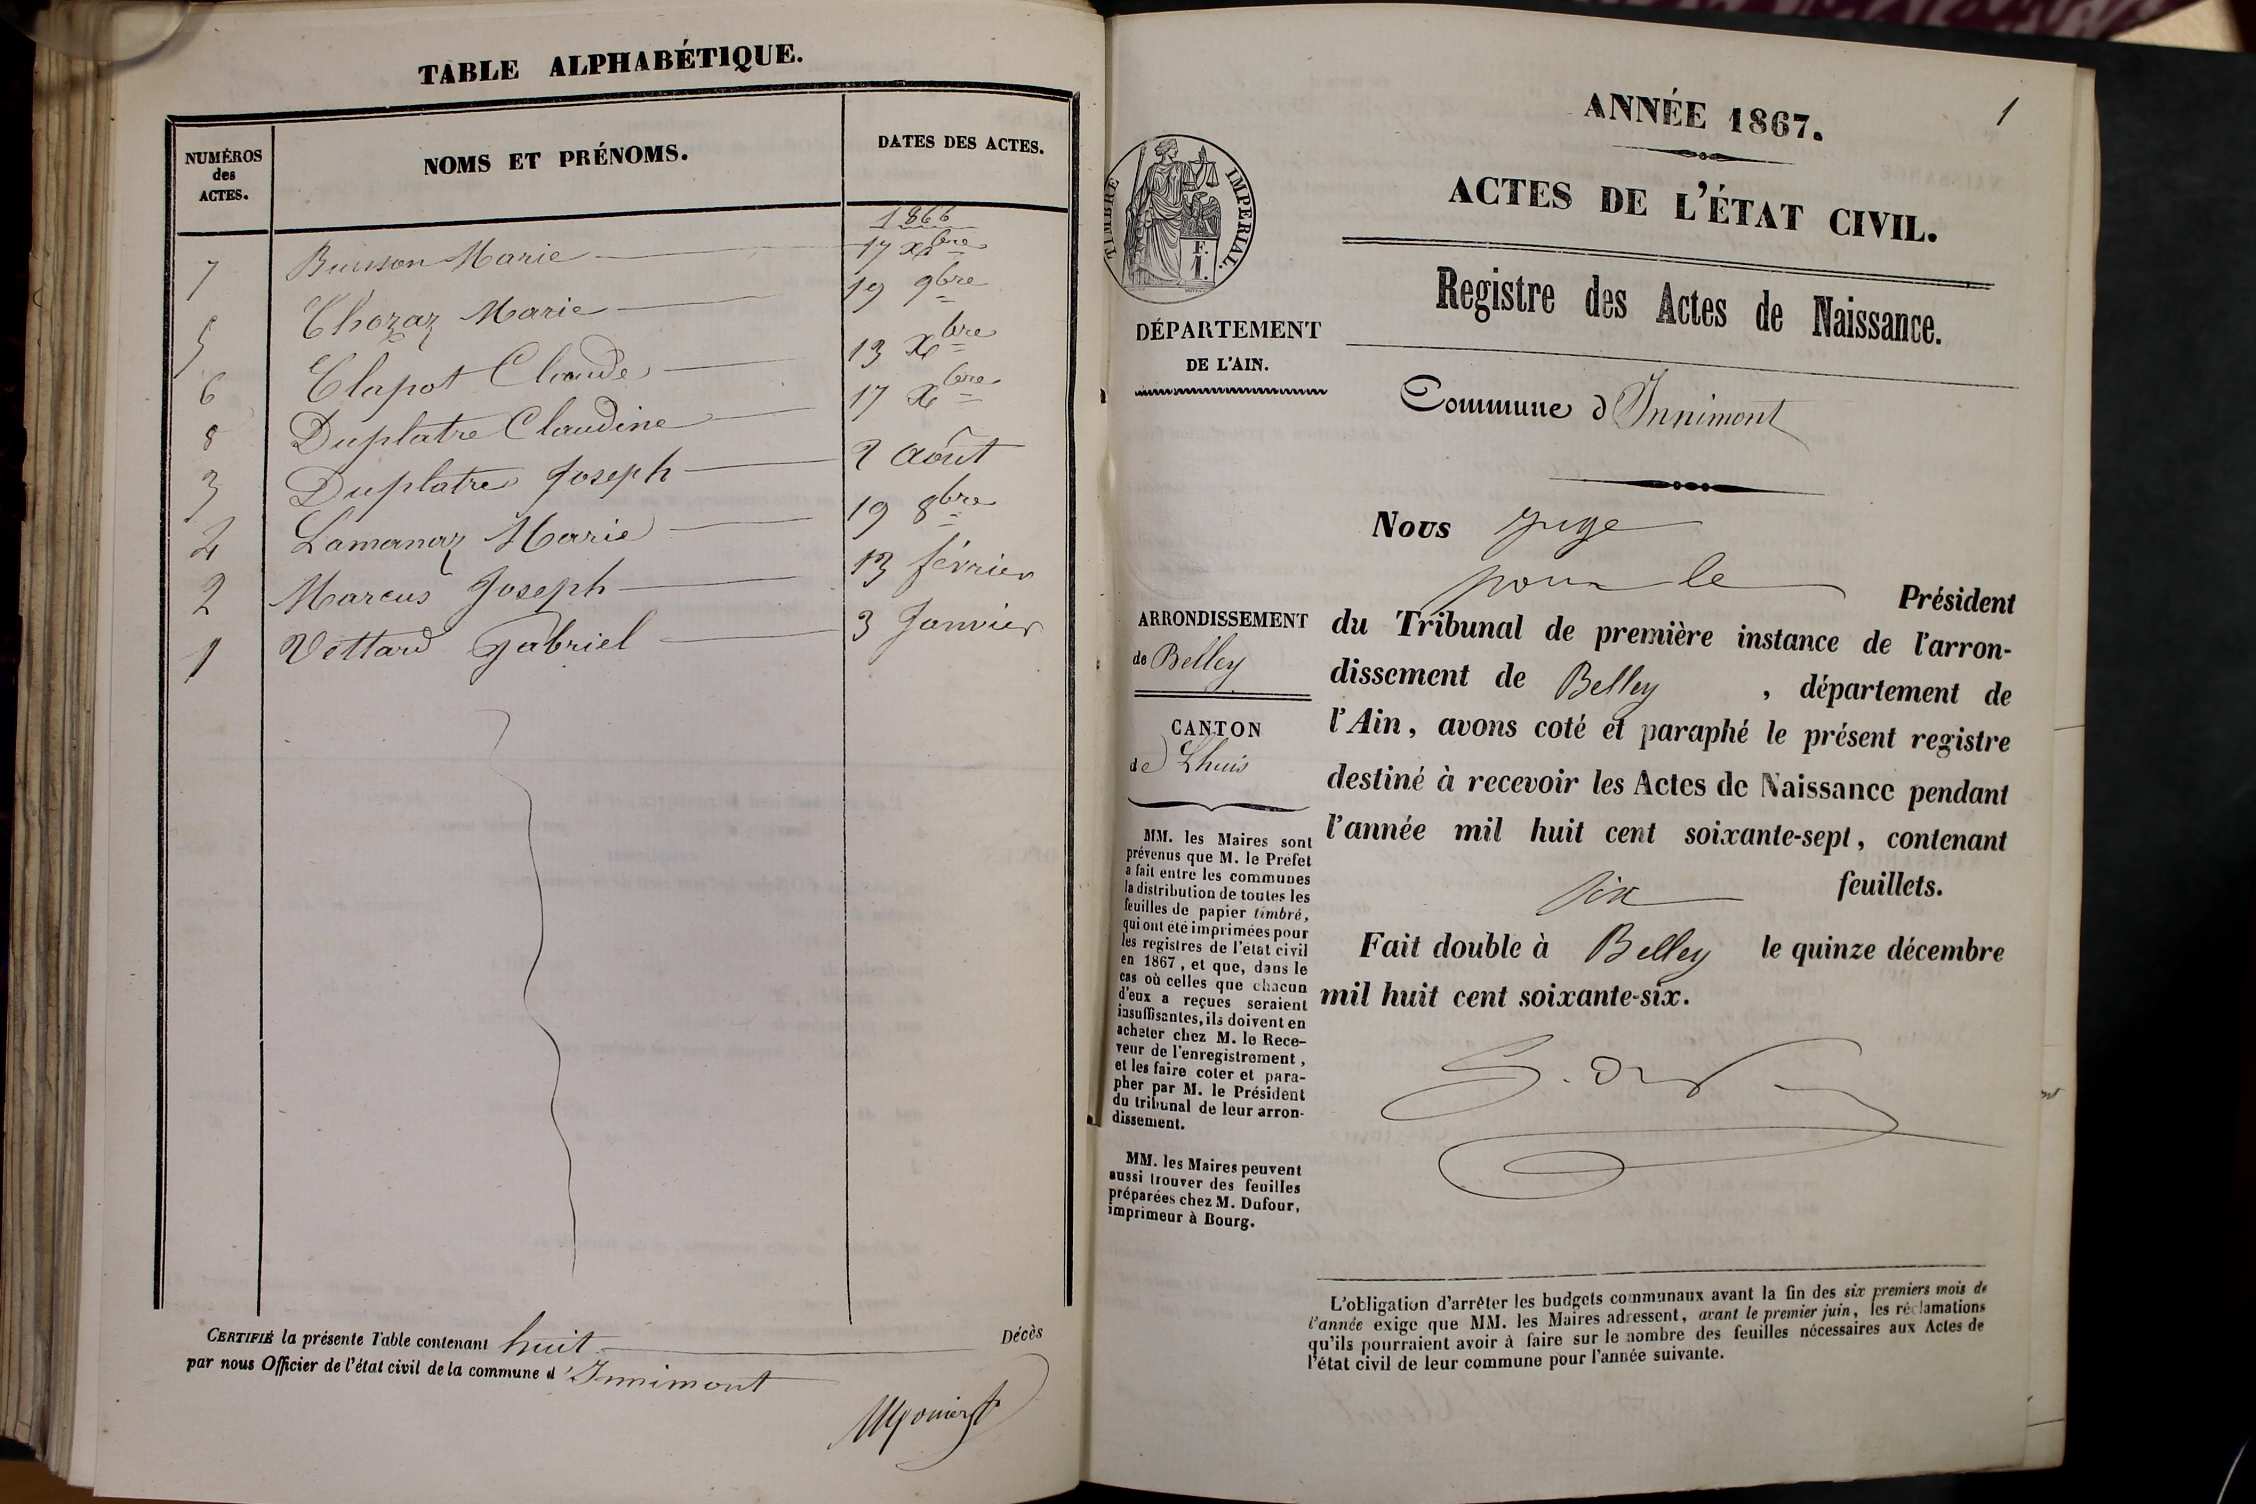 TABLE ALPHABÉTIQUE.
NUMÉROS
des
ACTES.
NOMS ET PRÉNOMS.
DATES DES ACTES.
1866
7 Buisson Marie 17 Xbre
5 Chozaz Marie 19 9bre
6 Clapot Claude 13 Xbre
8 Duplatre Claudine 17 Xbre
3 Duplatre Joseph 2 Août
4 Lamanaz Marie 19 8bre
2 Marcus Joseph 13 février
1 Vettard Gabriel 3 Janvier
CERTIFIÉ la présente Table contenant huit Décès
par nous Officier de l'état civil de la commune d'Innimont
1
ANNÉE 1867.
ACTES DE L'ÉTAT CIVIL.
Registre des Actes de Naissance.
TIMBRE IMPERIAL.
F.
1.
DÉPARTEMENT
DE L'AIN.
Commune d'Innimont
ARRONDISSEMENT
de Belley
CANTON
de Lhuis
MM. les Maires sont
prévenus que M. le Prefet
a fait entre les communes
la distribution de toutes les
feuilles de papier timbré,
qui ont été imprimées pour
les registres de l'état civil
en 1867, et que, dans le
cas où celles que chacun
d'eux a reçues seraient
insuffisantes, ils doivent en
acheter chez M. le Rece-
veur de l'enregistrement,
et les faire coter et para-
pher par M. le Président
du tribunal de leur arron-
dissement.
MM. les Maires peuvent
aussi trouver des feuilles
préparées chez M. Dufour,
imprimeur à Bourg.
Nous juge
pour le Président
du Tribunal de première instance de l'arron-
dissement de Belley, département de
l'Ain, avons coté et paraphé le présent registre
destiné à recevoir les Actes de Naissance pendant
l'année mil huit cent soixante-sept, contenant
six feuillets.
Fait double à Belley le quinze décembre
mil huit cent soixante-six.
L'obligation d'arrêter les budgets communaux avant la fin des six premiers mois de
l'année exige que MM. les Maires adressent, avant le premier juin, les réclamations
qu'ils pourraient avoir à faire sur le nombre des feuilles nécessaires aux Actes de
l'état civil de leur commune pour l'année suivante.